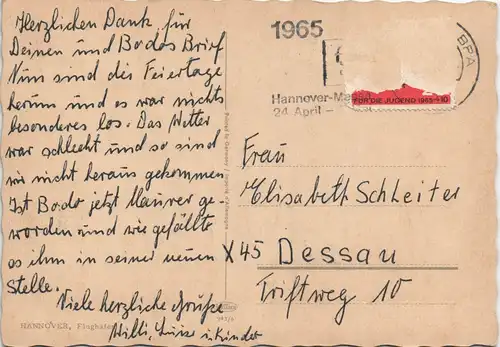 Herzlichen Dank, für
Deinen und Bodos Brief
Nun sind die Feiertage
herum und es war nichts
besonderes los. Das Wetter
war schlecht und so sind
wir nicht heraus gekommen
Ist Bodo jetzt Maurer ge-
worden und wie gefällts
es ihm in seiner neuen
Stelle.
Viele herzliche Grüße
Willi, Luise u. Kinder
HANNOVER, Flughafen
Printed in Germany / Imprimé d'Allemagne
1965
Hannover-Me
24 April –
BPA
FÜR DIE JUGEND 1965 +10
Frau
Elisabeth Schleiter
X 45 Dessau
Triftweg 10